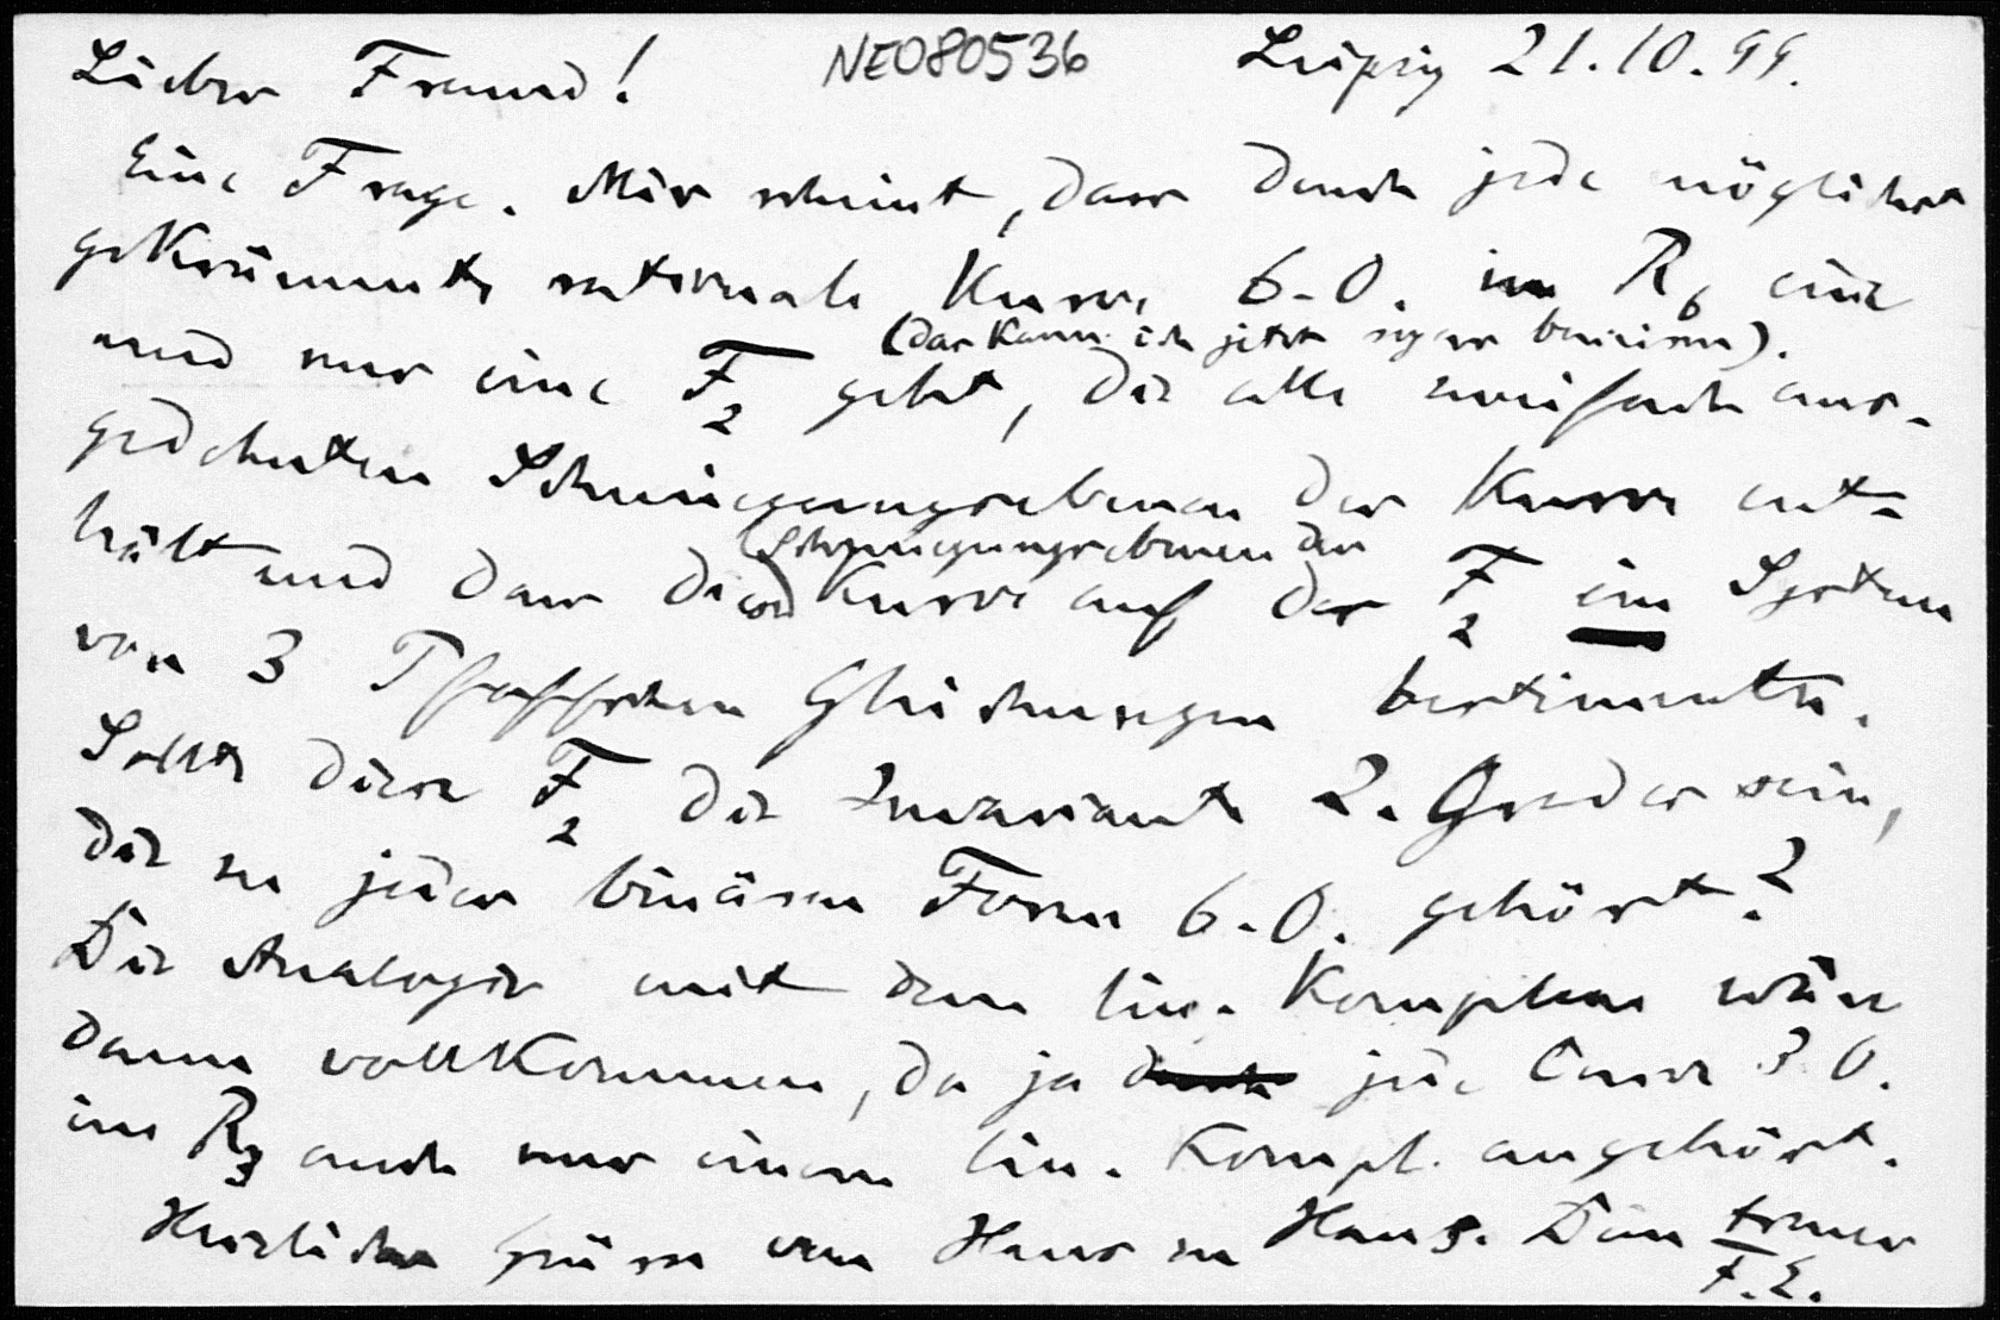 Lieber Freund! NE080536 Leipzig 21.10.99.
Eine Frage. Mir scheint, dass durch jede möglichst
gekrümmte rationale Kurve 6. O. im R6 eine
(das kann ich jetzt sogar beweisen).
und nur eine F2 geht, die alle zweifach aus-
gedehnten Schmiegungsebenen der Kurve ent-
(Schmiegungsebenen der
hält und dass diese Kurve auf der F2 ein System
von 3 Pfaffschen Gleichungen bestimmte.
Sollte diese F2 die Invariante 2. Grades sein,
die zu jeder binären Form 6. O. gehört?
Die Analogie mit dem lin. Komplexe wäre
dann vollkommen, da ja durch jede Curve 3. O.
im R3 auch nur einem lin. Kompl. angehört.
Herzliche Grüsse von Haus zu Haus. Dein treuer
F.E.